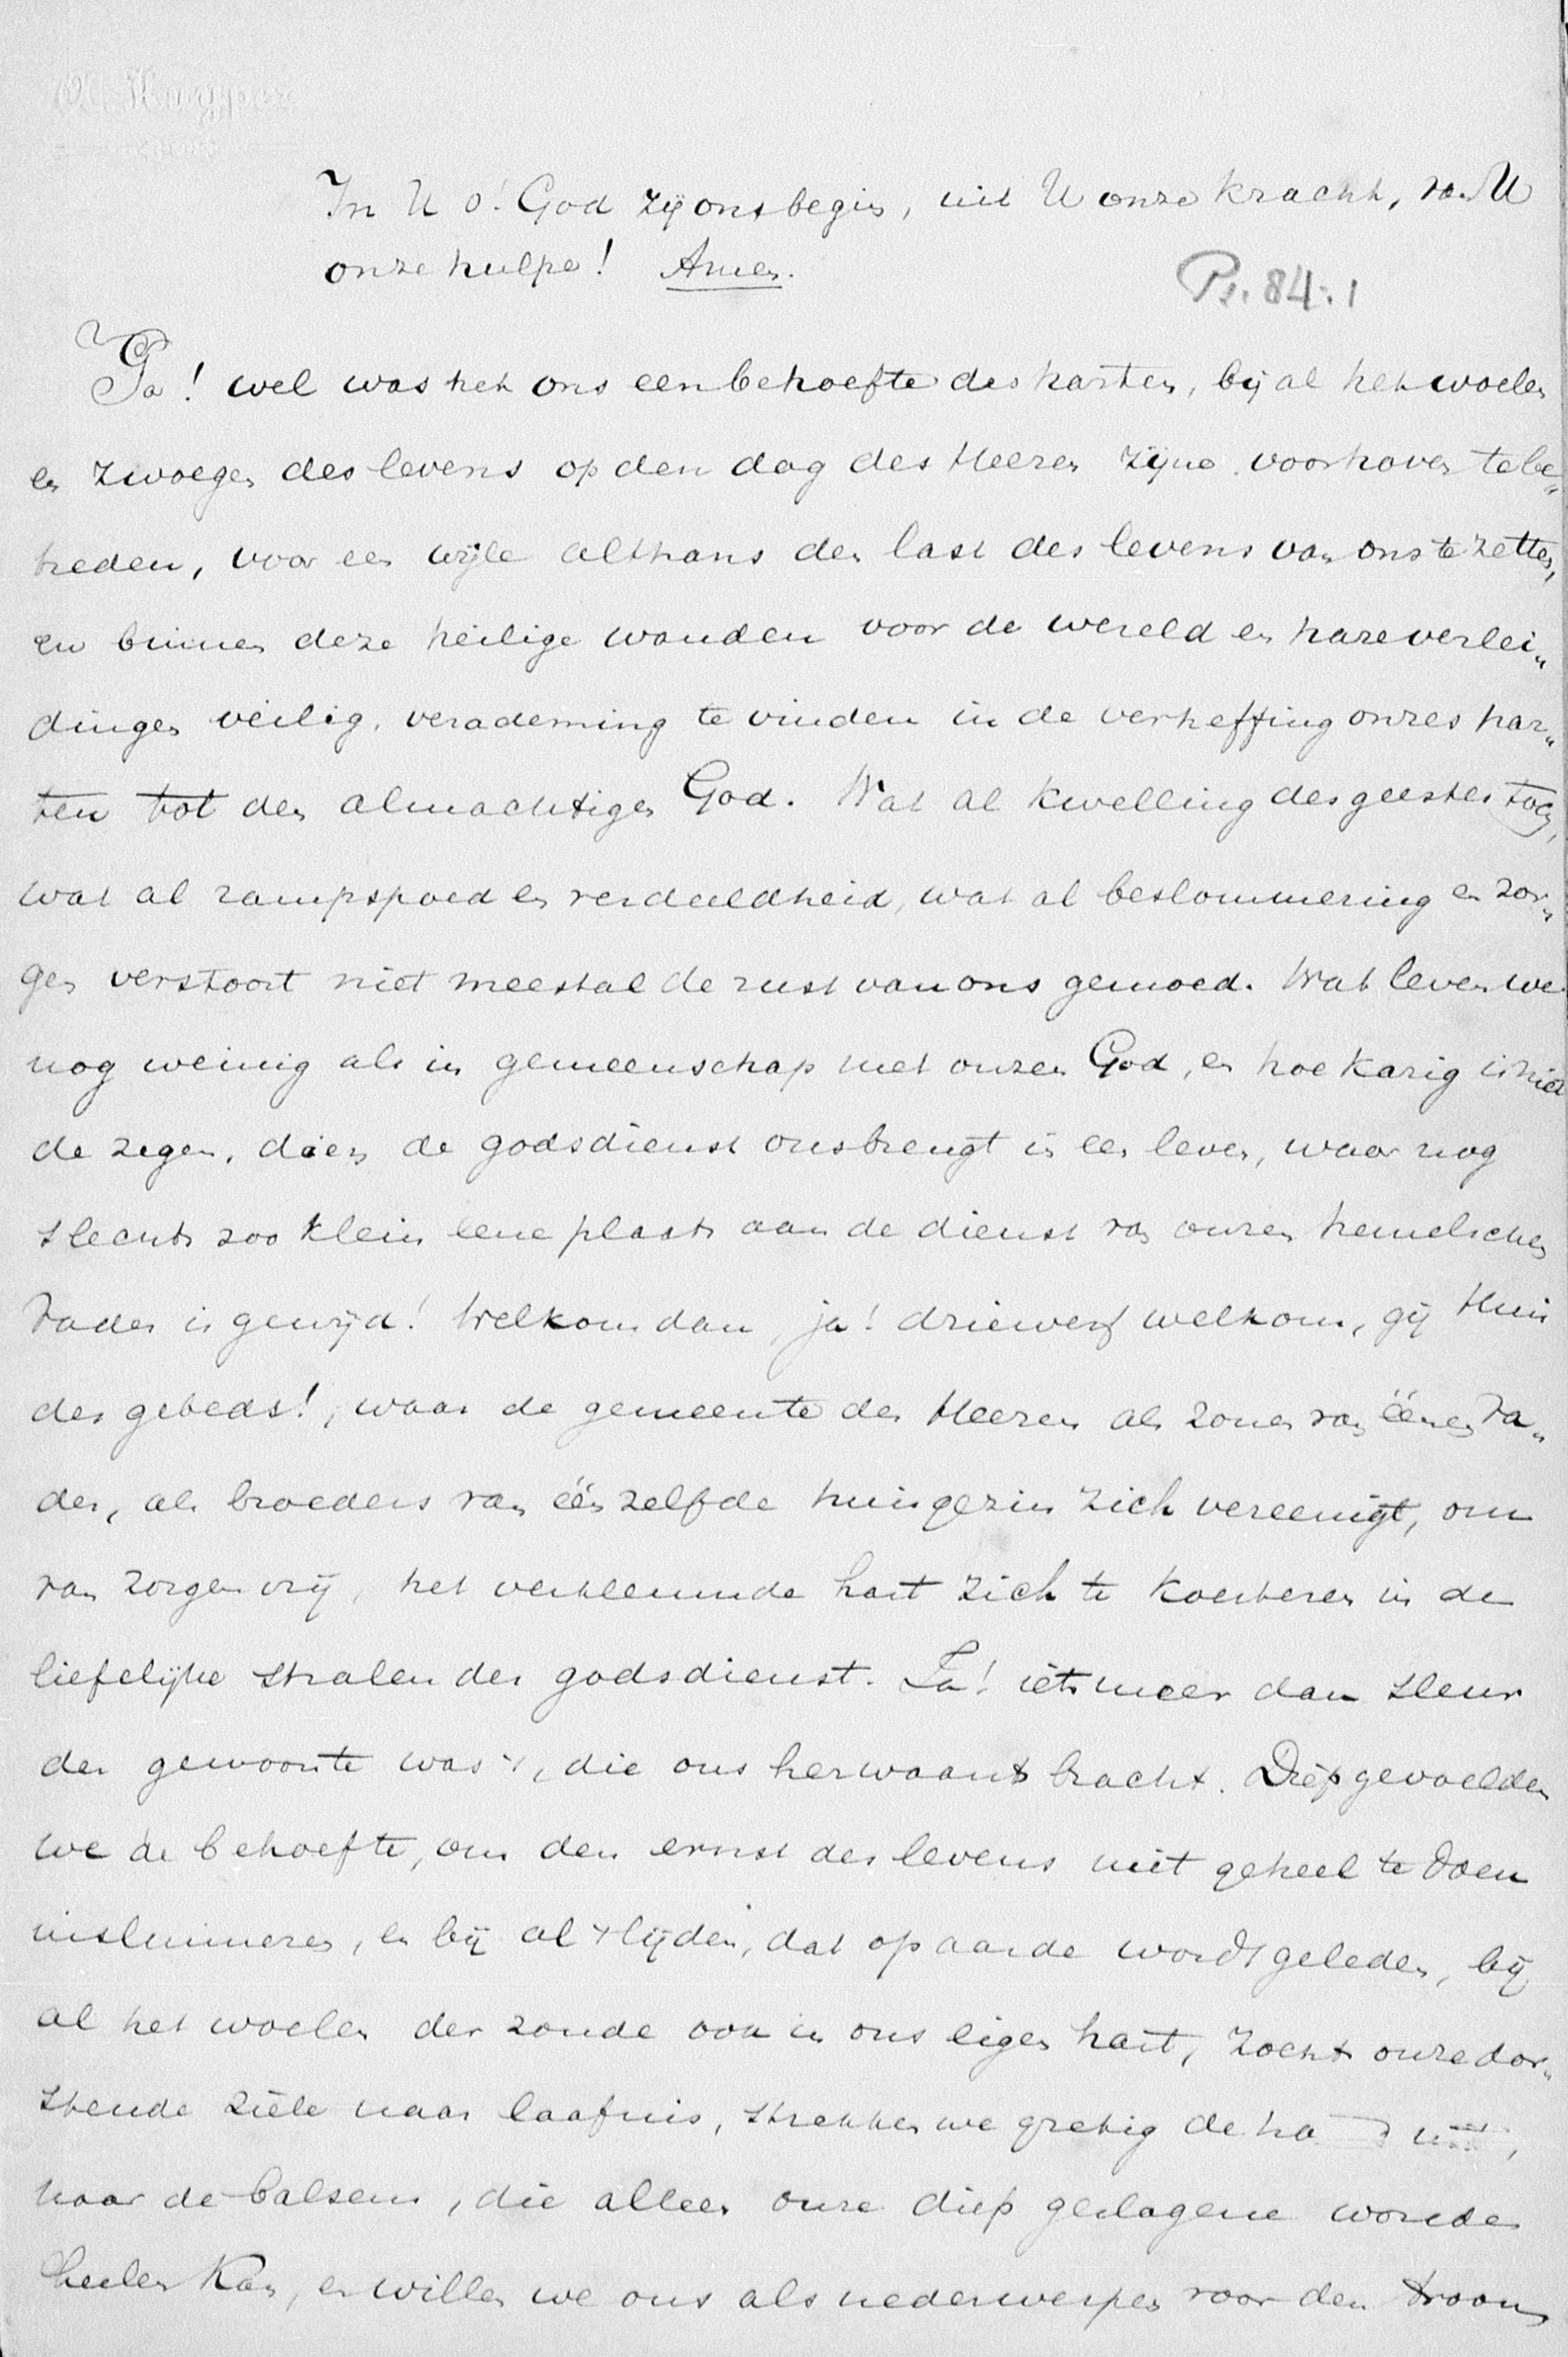 A. Kuyper
In U o! God zij ons begin, uit U onze kracht, van U
onze hulpe! Amen.
Ps. 84:1
Ja! wel was het ons een behoefte des harten, bij al het woelen
en zwoegen des levens op den dag des Heeren zijne voorhoven te be„
treden, voor een wijle althans den last des levens van ons te zetten,
en binnen deze heilige wanden voor de wereld en hare verlei„
dingen veilig, verademing te vinden in de verheffing onzes har„
ten tot den almachtigen God. Wat al kwelling des geestes toch,
wat al rampspoed en verdeeldheid, wat al beslommering en zor„
gen verstoort niet meestal de rust van ons gemoed. Wat leven we
nog weinig als in gemeenschap met onzen God, en hoe karig is niet
de zegen, dien de godsdienst ons brengt in een leven, waar nog
slechts zoo klein eene plaats aan de dienst van onzen hemelschen
Vader is gewijd! Welkom dan, ja! driewerf welkom, gij Huis
des gebeds!, waar de gemeente des Heeren als zonen van éénen Va„
der, als broeders van één zelfde huisgezin zich vereenigt, om
van zorgen vrij, het verkleumde hart zich te koesteren in de
liefelijke stralen der godsdienst. Ja! iets meer dan sleur
der gewoonte was 't, die ons herwaarts bracht. Diep gevoelden
we de behoefte, om den ernst des levens niet geheel te doen
insluimeren, en bij al 't lijden, dat op aarde wordt geleden, bij
al het woelen der zonde ook in ons eigen hart, zocht onze dor„
stende ziele naar laafnis, strekken we gretig de ha d uit,
naar de balsem, die alleen onze diep geslagene wonden
heelen kan, en willen we ons als nederwerpen voor den troon